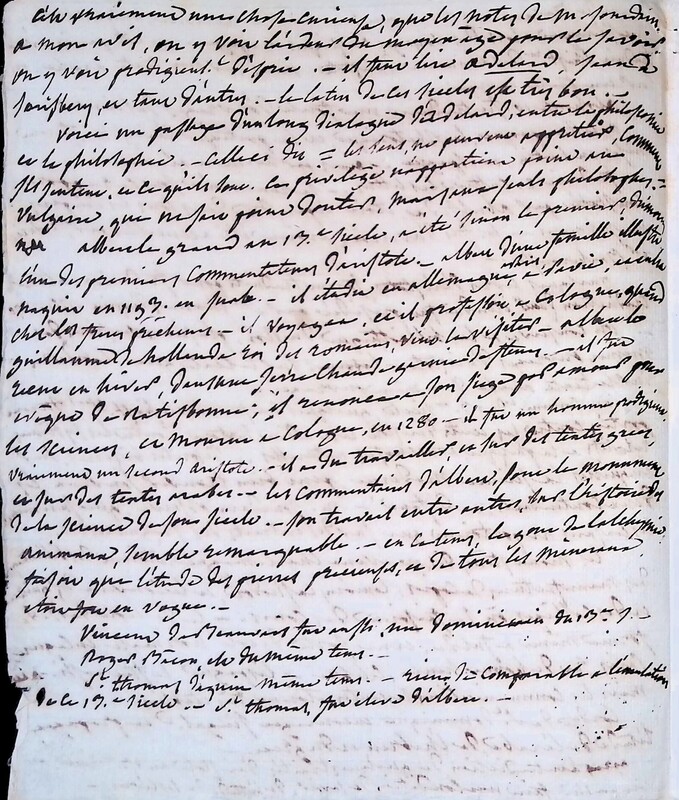 c'est vraiement une chose curieuse, que les notes de m. jourdain
a mon avis, on y voit l'ardeur du moyen age pour le savoir
on y voit prodigieus.t d'esprit. – il faut lire adelard, jean de
sarisbery, et tant d'autres. – le latin de ces siècles est très bon. –
voici un passage d'un long dialogue d'adelard, entre la philocosmie
et la philosophie. – celle ci dit = les sens, ne peuvent apprécier, comment
ils sentent, et ce qu'ils sont. ce privilège n'appartient point au
vulgaire, que ne fait point douter, mais aux seuls philosophes. –
albert le grand au 13.e siècle, a été sinon le premier, du moins
l'un des premiers commentateurs d'aristote. – albert d'une famille illustre
naquit en 1193. en suabe. – il étudia en allemagne, a pavie, et entra
chez les frères prêcheurs. – il voyagea, et il professoit, a Cologne, quand
guillaume de hollande roi des romains, vint le visiter – albert le
recut en hiver, dans une serre chaude garnie de fleurs. – il fut
evêque de Ratisbonne, il renonca a son siège par amour pour
les sciences, et mourut a Cologne, en 1280 – il fut un homme prodigieux,
vraiement un second aristote. – il a du travailler, et sur des textes grecs,
et sur des textes arabes. – les commentaires d'albert, sont le monument
de la science de son siècle. – son travail entre autres, sur l'histoire des
animaux, semble remarquable. – en ce tems, le gout de l'alchymie
faisoit que l'étude des pierres précieuses, et de tous les mineraux
etoit fort en vogue. –
Vincent de Beauvais fut aussi, un dominicain du 13.e s. –
Roger Bacon, est du même tems. –
S.t thomas d'aquin même tems. – rien de comparable a l'émulation
de ce 13.e siècle. – S.t thomas, fut élève d'albert. –